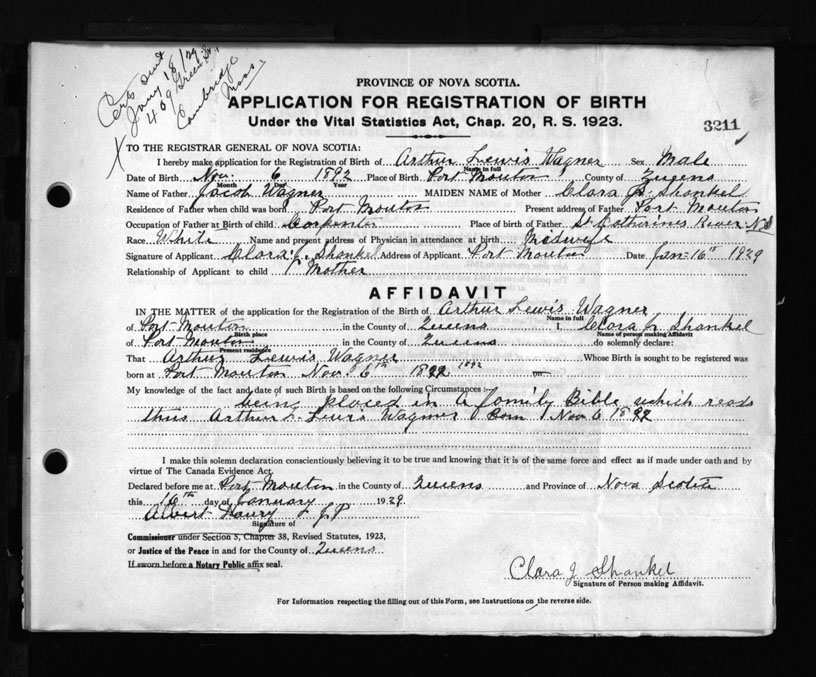 Cert sent
Jany 18/29
469 Green St,
Cambridge
Mass.
PROVINCE OF NOVA SCOTIA.
APPLICATION FOR REGISTRATION OF BIRTH
Under the Vital Statistics Act, Chap. 20, R. S. 1923.
3211
X TO THE REGISTRAR GENERAL OF NOVA SCOTIA:
I hereby make application for the Registration of Birth of Arthur Lewis Wagner Sex Male
Name in full
Date of Birth Nov. 6 1892 Place of Birth Port Mouton County of Queens
Month Day Year
Name of Father Jacob Wagner MAIDEN NAME of Mother Clara J. Shankel
Residence of Father when child was born Port Mouton Present address of Father Port Mouton
Occupation of Father at Birth of child Carpenter Place of birth of Father St Catherines River NS
Race White Name and present address of Physician in attendance at birth Midwife
Signature of Applicant Clara J. Shankel Address of Applicant Port Mouton Date Jan 16th 1929
Relationship of Applicant to child Mother
AFFIDAVIT
IN THE MATTER of the application for the Registration of the Birth of Arthur Lewis Wagner
Name in full
of Port Mouton in the County of Queens I, Clara J Shankel
Birth place Name of person making Affidavit
of Port Mouton in the County of Queens do solemnly declare:
Present residence
That Arthur Lewis Wagner Whose Birth is sought to be registered was
born at Port Mouton Nov. 6th 1892 1892 on
My knowledge of the fact and date of such Birth is based on the following Circumstances :—
being placed in a family Bible which reads
thus Arthur L. Lewis Wagner Born Nov 6 1892
I make this solemn declaration conscientiously believing it to be true and knowing that it is of the same force and effect as if made under oath and by
virtue of The Canada Evidence Act.
Declared before me at Port Mouton in the County of Queens and Province of Nova Scotia
this 16th day of January 1929
Albert J.P
Signature of
Commissioner under Section 5, Chapter 38, Revised Statutes, 1923,
or Justice of the Peace in and for the County of Queens
If sworn before a Notary Public affix seal.
Clara J Shankel
Signature of Person making Affidavit.
For Information respecting the filling out of this Form, see Instructions on the reverse side.